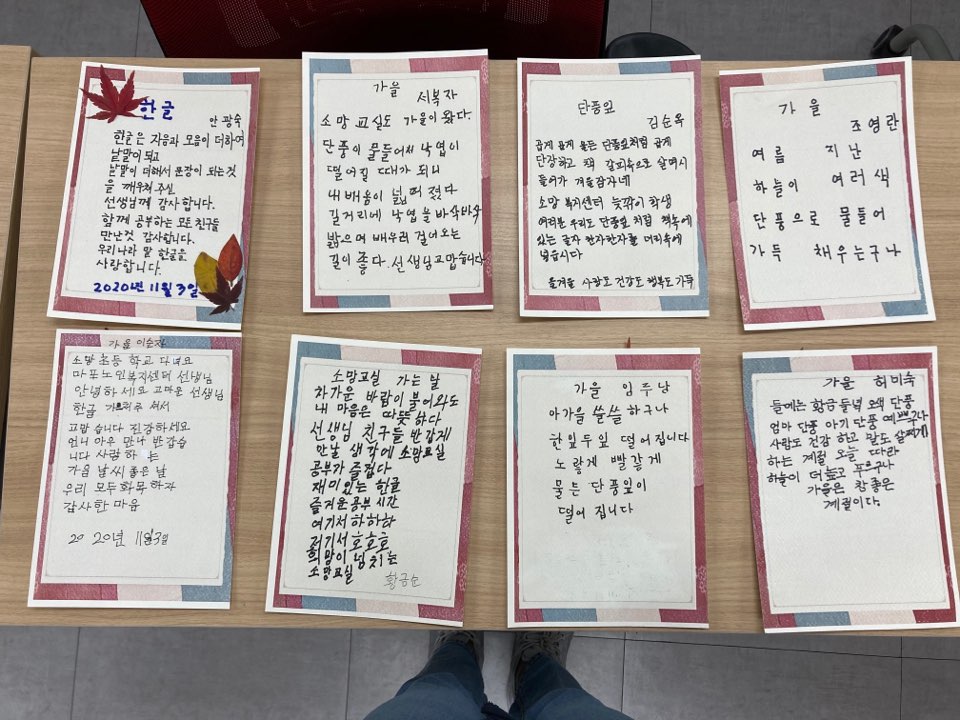 한글
안 광숙
한글은 자음과 모음이 더하여
낱말이 되고
낱말이 더해서 문장이 되는것
을 깨우쳐 주실
선생님께 감사 합니다.
함께 공부하는 모든 친구들
만난것 감사합니다.
우리나라 말 한글을
사랑합니다.
2020년 11월 3일
가을
서복자
소망 교실도 가을이 왔다.
단풍이 물들어서 낙엽이
떨어질 때가 되니
내 배움이 넓어 졌다
길거리에 낙엽을 바삭바삭
밟으며 배우러 걸어오는
길이 좋다. 선생님 고맙습니다
단풍잎
김순옥
곱게 곱게 물든 단풍잎처럼 곱게
단장하고 책 갈피속으로 살며시
들어가 겨울잠자네
소망 복지센터 늦깎이 학생
여러분 우리도 단풍잎 처럼 책속에
있는 글자 한자한자를 머리속에
넣읍시다
올겨울 사랑도 건강도 행복도 가득
가 을
조영란
여름 지난
하늘이 여러색
단풍으로 물들어
가득 채우는구나
가을 이순자
소망 초등 학교 다녀요
마포노인복지센터 선생님
안녕하세요 고마운 선생님
한글 가르켜주 셔서
고맙 습니다 건강하세요
언니 아우 만나 반갑습
니다 사랑 하 는
가을 날씨 좋은 날
우리 모두 화목 하자
감사한 마음
2020년 11월3일
소망교실 가는 날
차가운 바람이 불어와도
내 마음은 따뜻하다
선생님 친구들 반갑게
만날 생각에 소망교실
공부가 즐겁다
재미있는 한글
즐거운 공부 시간
여기서 하하하
저기서 호호호
희망이 넘치는
소망교실
황금순
가을 임주남
아가을 쓸쓸 하구나
한잎두잎 떨어집니다
노랗게 빨갛게
물든 단풍잎이
떨어 집니다
가을 허미숙
들에는 황금들녘 오색 단풍
엄마 단풍 아기 단풍 예쁘구나
사람도 건강 하고 말도 살찌게
하는 계절 오늘 따라
하늘이 더 높고 푸르구나
가을은 참 좋은
계절이다.